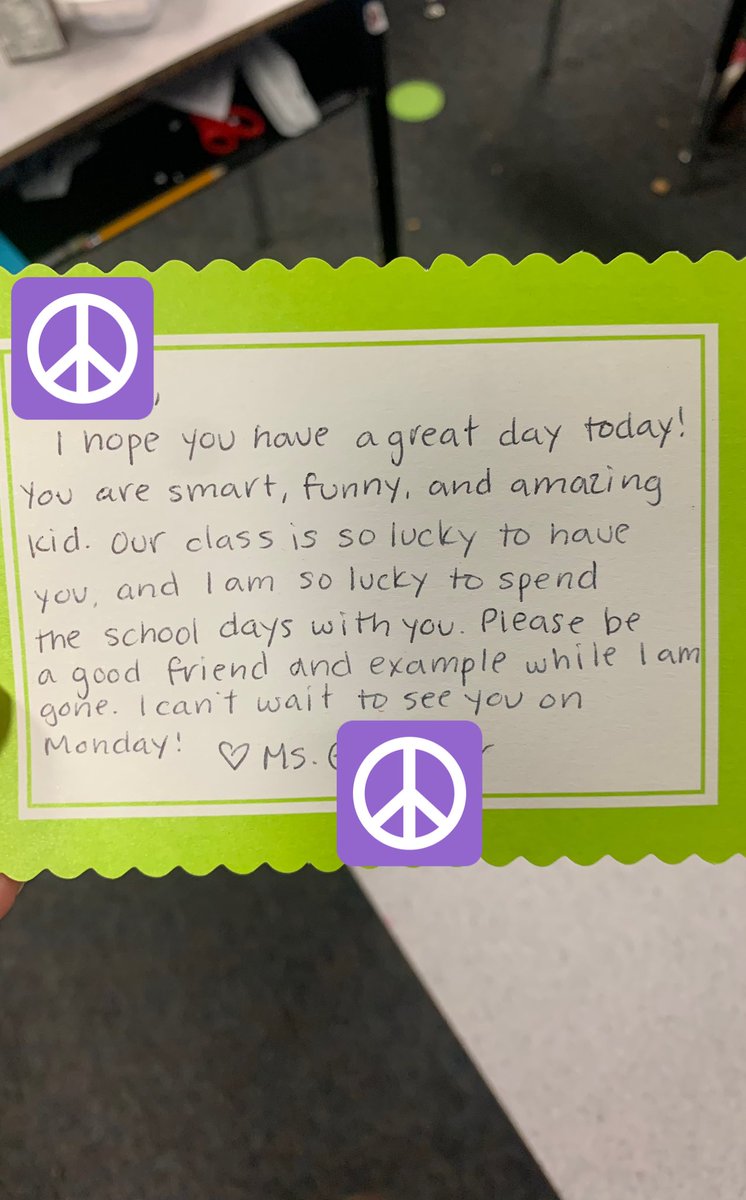 I hope you have a great day today!
You are smart, funny, and amazing
kid. Our class is so lucky to have
you, and I am so lucky to spend
the school days with you. Please be
a good friend and example while I am
gone. I can't wait to see you on
Monday! ♡ Ms.